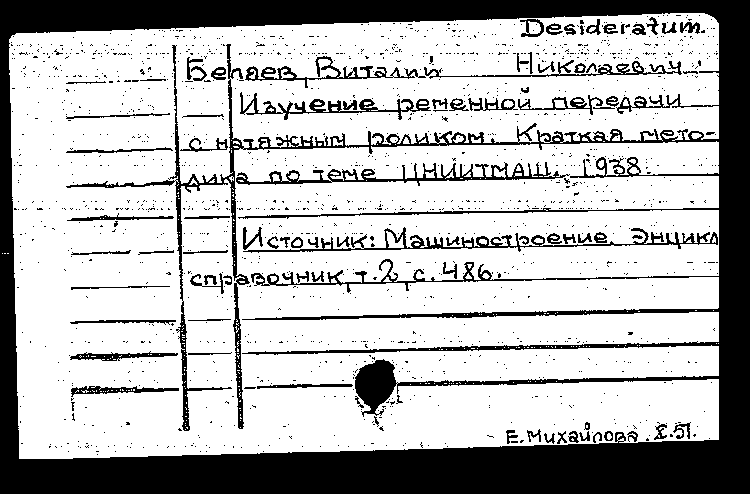 Desideratum.
Беляев, Виталий Николаевич.
Изучение ременной передачи
с натяжным роликом. Краткая мето-
дика по теме ЦНИИТМАШ. 1938.
Источник: Машиностроение. Энцикл
справочник, т.2, с. 486.
Е. Михайлова. X.51.